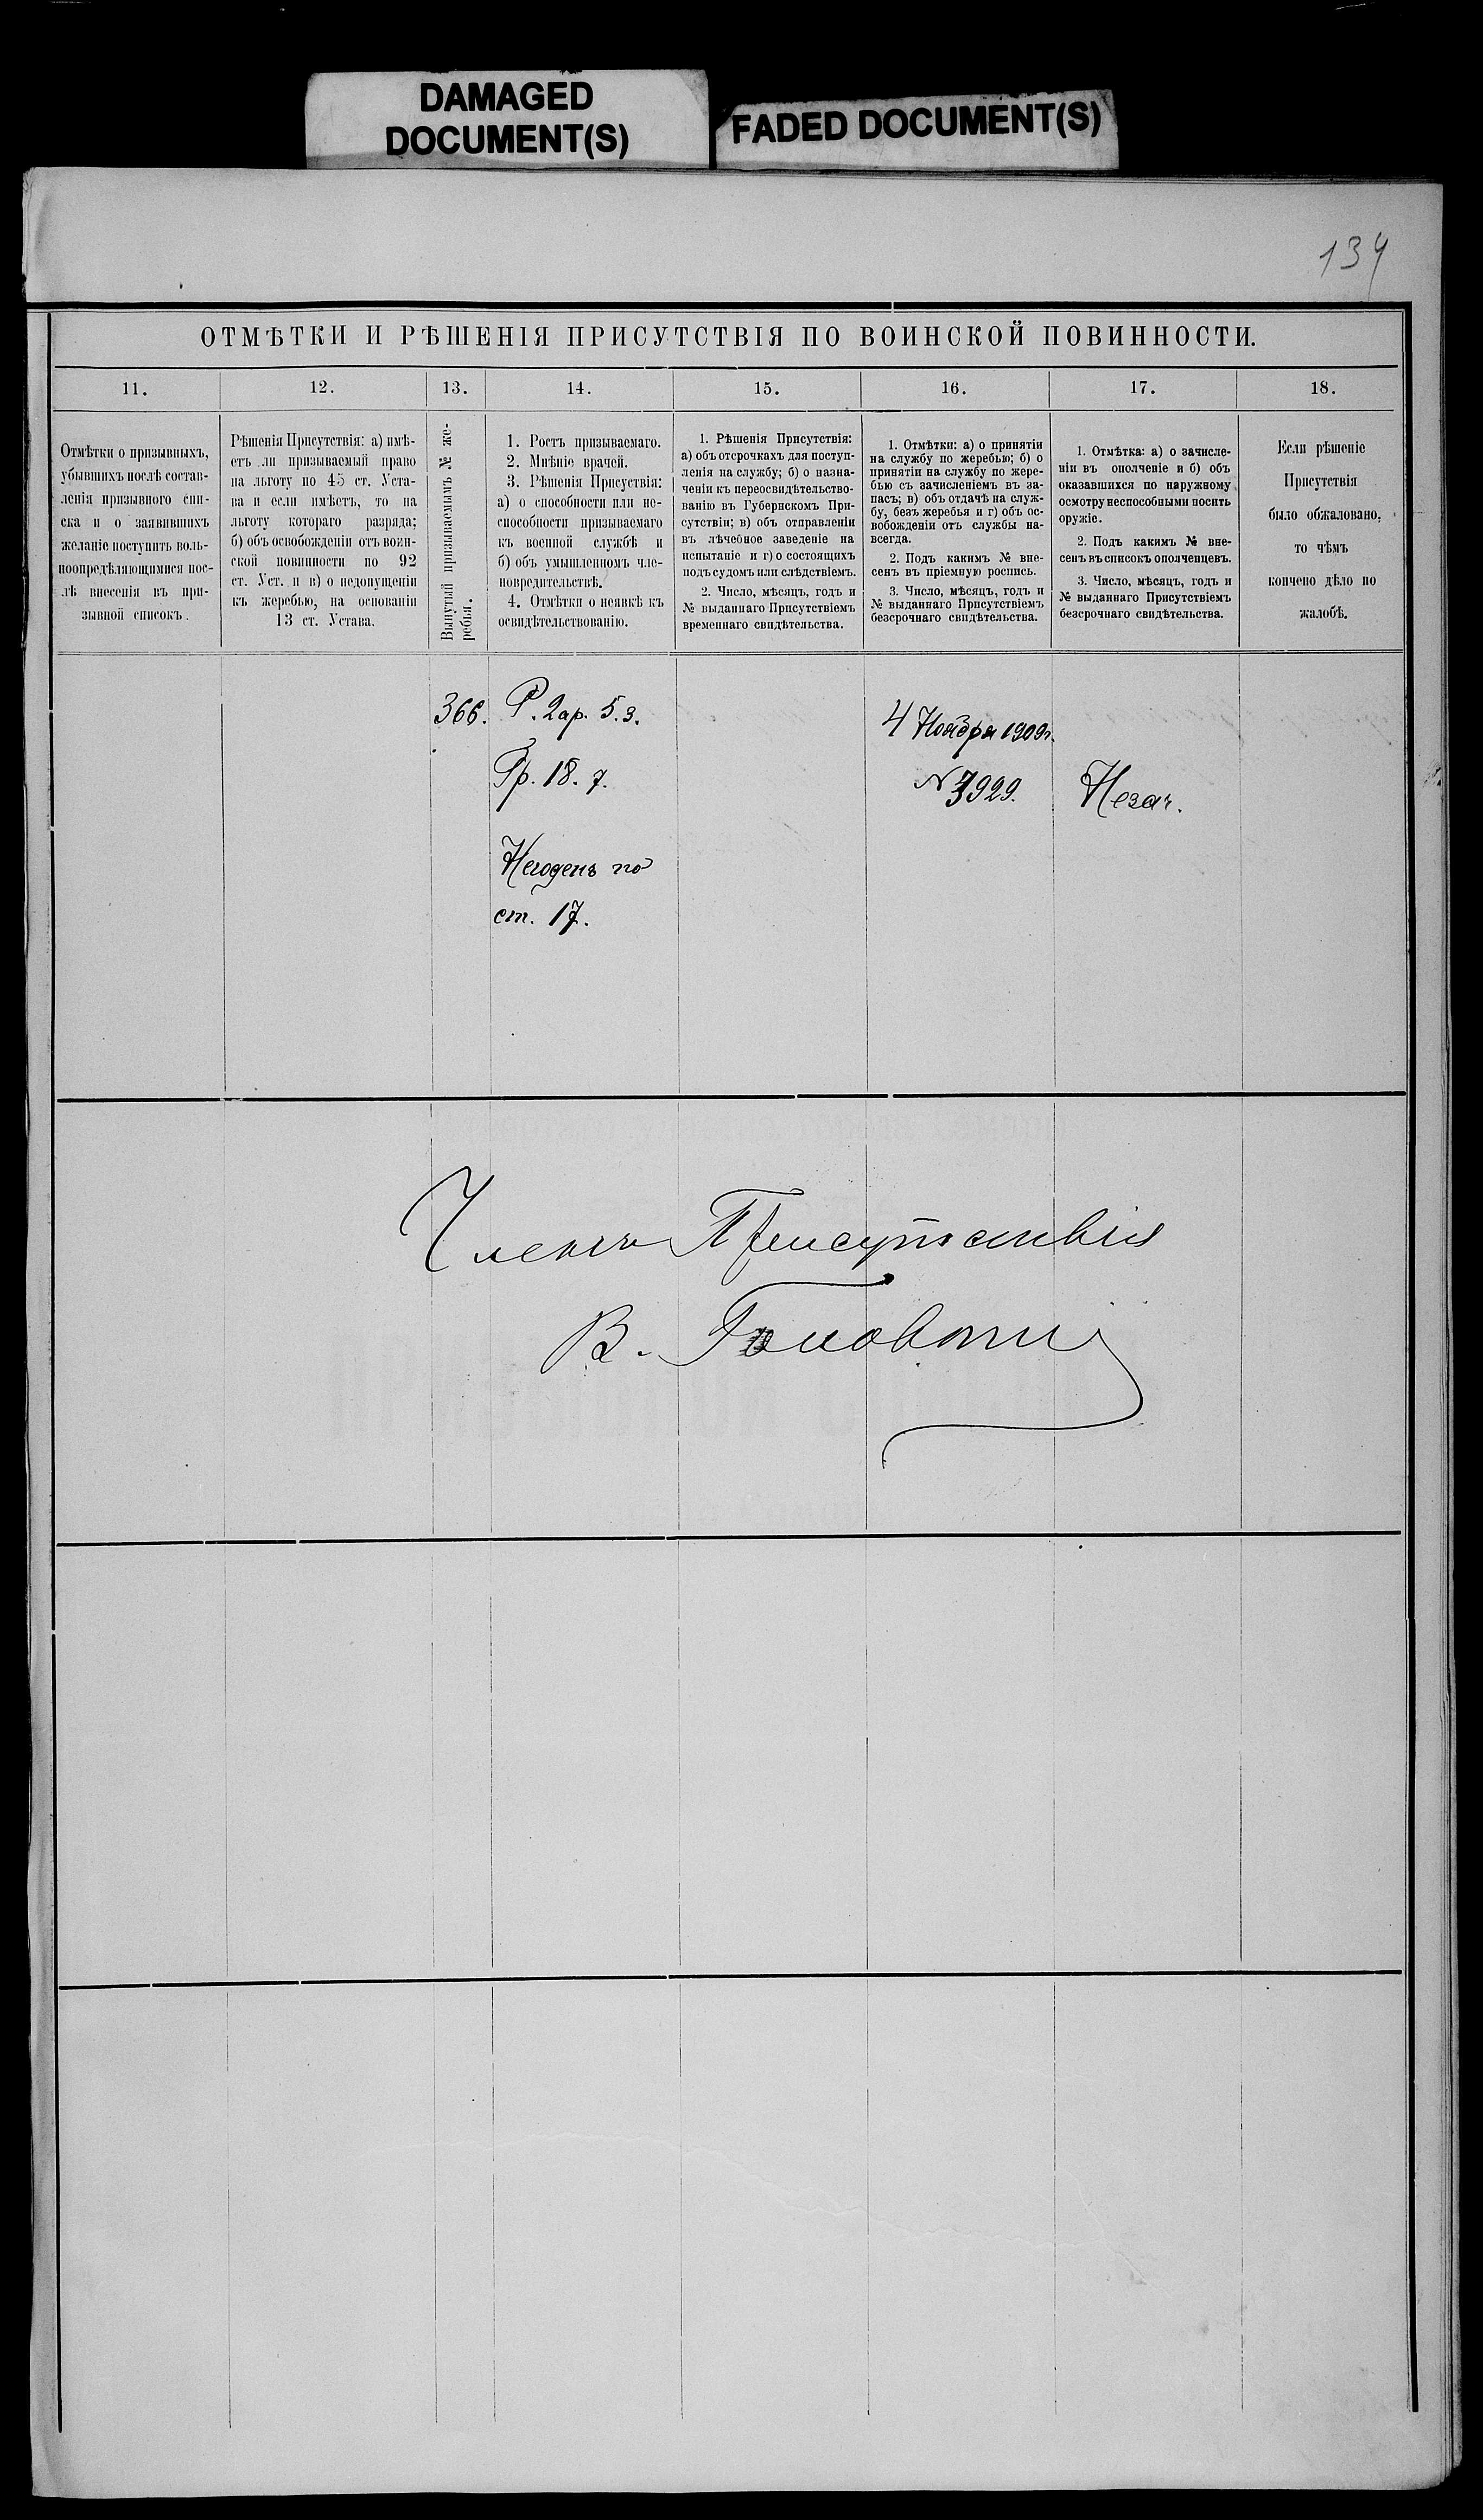 DAMAGED
DOCUMENT(S)
FADED DOCUMENT(S)
134
ОТМѢТКИ И РѢШЕНІЯ ПРИСУТСТВІЯ ПО ВОИНСКОЙ ПОВИННОСТИ.
11.
12.
13.
14.
15.
16.
17.
18.
Отмѣтки о призывныхъ,
убывшихъ послѣ состав-
ленія призывного спи-
ска и о заявившихъ
желаніе поступить воль-
ноопредѣляющимися пос-
лѣ внесенія въ при-
зывной списокъ.
Рѣшенія Присутствія: а) имѣ-
етъ ли призываемый право
на льготу по 45 ст. Уста-
ва и если имѣетъ, то на
льготу котораго разряда;
б) объ освобожденіи отъ воин-
ской повинности по 92
ст. Уст. и в) о недопущеніи
къ жеребью, на основаніи
13 ст. Устава.
Вынутый призываемымъ № же-
ребья.
1. Ростъ призываемаго.
2. Мнѣніе врачей.
3. Рѣшенія Присуствія:
а) о способности или не-
способности призываемаго
къ военной службѣ и
б) объ умышленномъ чле-
новредительствѣ.
4. Отмѣтки о неявкѣ къ
освидѣтельствованію.
1. Рѣшенія Присутствія:
а) объ отсрочкахъ для поступ-
ленія на службу; б) о назна-
ченіи къ переосвидѣтельство-
ванію въ Губернскомъ При-
сутствіи; в) объ отправленіи
въ лѣчебное заведеніе на
испытаніе и г) о состоящихъ
подъ судомъ или слѣдствіемъ.
2. Число, мѣсяцъ, годъ и
№ выданнаго Присутствіемъ
временнаго свидѣтельства.
1. Отмѣтки: а) о принятіи
на службу по жеребью; б) о
принятіи на службу по жере-
бью съ зачисленіемъ въ за-
пасъ; в) объ отдачѣ на служ-
бу, безъ жеребья и г) объ ос-
вобожденіи отъ службы на-
всегда.
2. Подъ какимъ № вне-
сенъ въ пріемную роспись.
3. Число, мѣсяцъ, годъ и
№ выданнаго Присутствіемъ
безсрочнаго свидѣтельства.
1. Отмѣтка: а) о зачисле-
ніи въ ополченіе и б) объ
оказавшихся по наружному
осмотру неспособными носить
оружіе.
2. Подъ какимъ № вне-
сенъ въ списокъ ополченцевъ.
3. Число, мѣсяцъ, годъ и
№ выданнаго Присутствіемъ
безсрочнаго свидѣтельства.
Если рѣшеніе
Присутствія
было обжаловано,
то чѣмъ
кончено дѣло по
жалобѣ.
366.
Р. 2ар. 5. 3.
Гр. 18. 7.
Негоденъ по
ст. 17.
4 Ноября 1909г.
№ 3929.
Незач.
Членъ Присутствія
В.